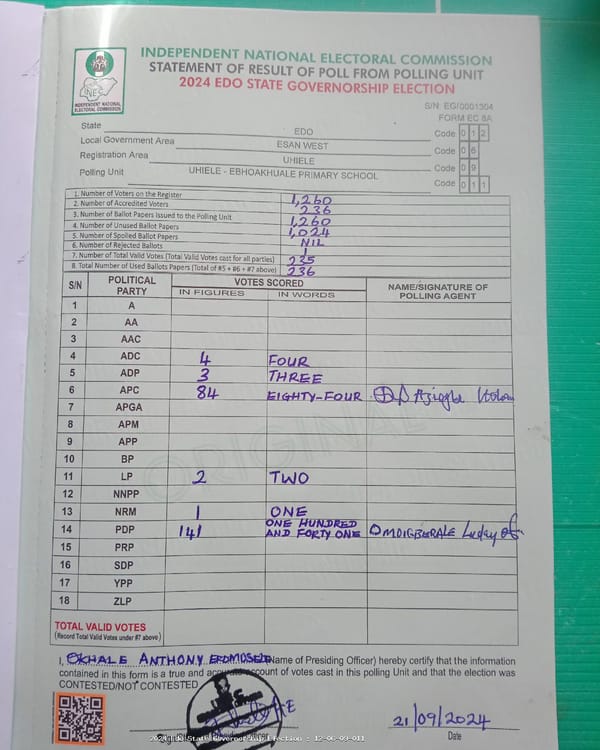 INDEPENDENT NATIONAL ELECTORAL COMMISSION
STATEMENT OF RESULT OF POLL FROM POLLING UNIT
2024 EDO STATE GOVERNORSHIP ELECTION
INEC
INDEPENDENT NATIONAL ELECTORAL COMMISSION
S/N: EG/0001304
FORM EC 8A
State EDO Code 0 1 2
Local Government Area ESAN WEST Code 0 6
Registration Area UHIELE Code 0 9
Polling Unit UHIELE - EBHOAKHUALE PRIMARY SCHOOL Code 0 1 1
1. Number of Voters on the Register 1,260
2. Number of Accredited Voters 236
3. Number of Ballot Papers Issued to the Polling Unit 1,260
4. Number of Unused Ballot Papers 1,024
5. Number of Spoiled Ballot Papers NIL
6. Number of Rejected Ballots 1
7. Number of Total Valid Votes (Total Valid Votes cast for all parties) 235
8. Total Number of Used Ballots Papers (Total of #5 + #6 + #7 above) 236
S/N POLITICAL PARTY VOTES SCORED NAME/SIGNATURE OF POLLING AGENT
IN FIGURES IN WORDS
1 A
2 AA
3 AAC
4 ADC 4 FOUR
5 ADP 3 THREE
6 APC 84 EIGHTY-FOUR
7 APGA
8 APM
9 APP
10 BP
11 LP 2 TWO
12 NNPP
13 NRM 1 ONE
14 PDP 141 ONE HUNDRED AND FORTY ONE
15 PRP
16 SDP
17 YPP
18 ZLP
ORIGINAL
TOTAL VALID VOTES
(Record Total Valid Votes under #7 above)
I, OKHALE ANTHONY EROMOSELE (Name of Presiding Officer) hereby certify that the information
contained in this form is a true and accurate account of votes cast in this polling Unit and that the election was
CONTESTED/NOT CONTESTED
21/09/2024
Date
2024 Edo State Governorship Election - 12-06-09-011